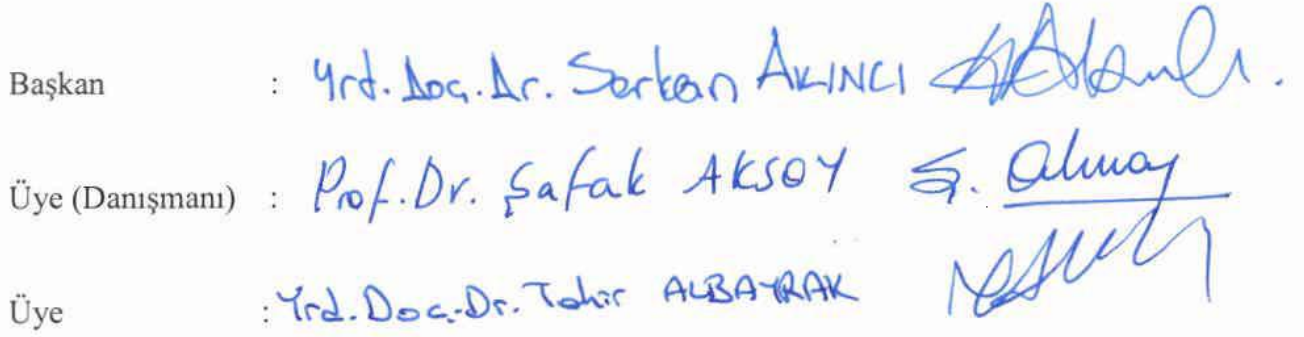 Başkan : Yrd. Doç. Dr. Serkan AKINCI
Üye (Danışmanı) : Prof. Dr. Şafak AKSOY Ş.
Üye : Yrd. Doç. Dr. Tahir ALBAYRAK